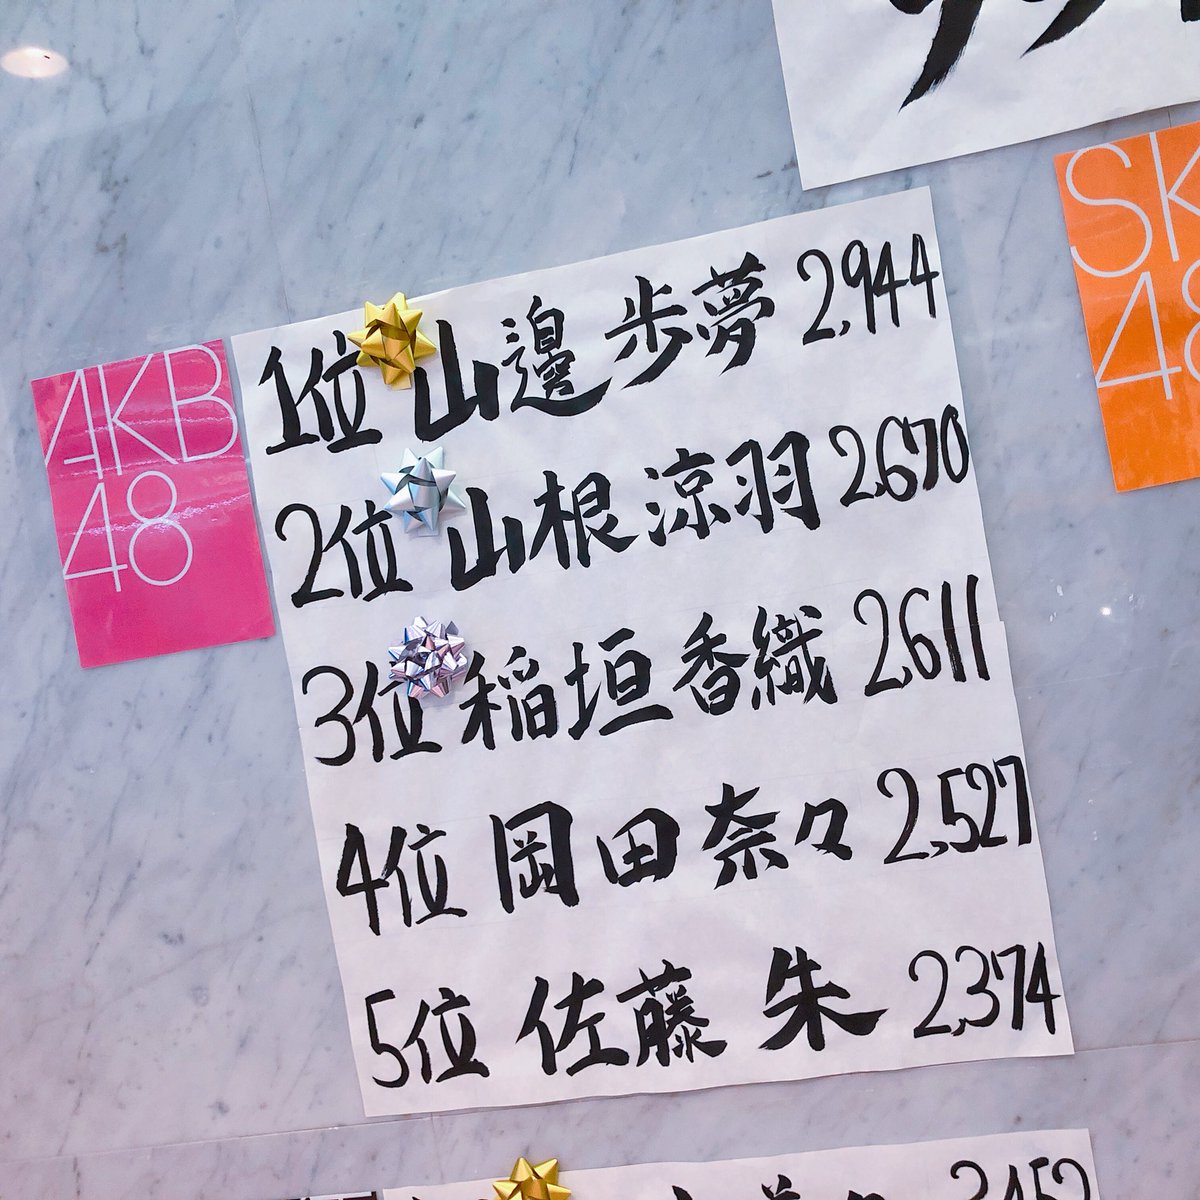 AKB
48
1位 山邉 歩夢 2,944
2位 山根 涼羽 2,670
3位 稲垣 香織 2,611
4位 岡田 奈々 2,527
5位 佐藤 朱 2,374
SK
48
3,452